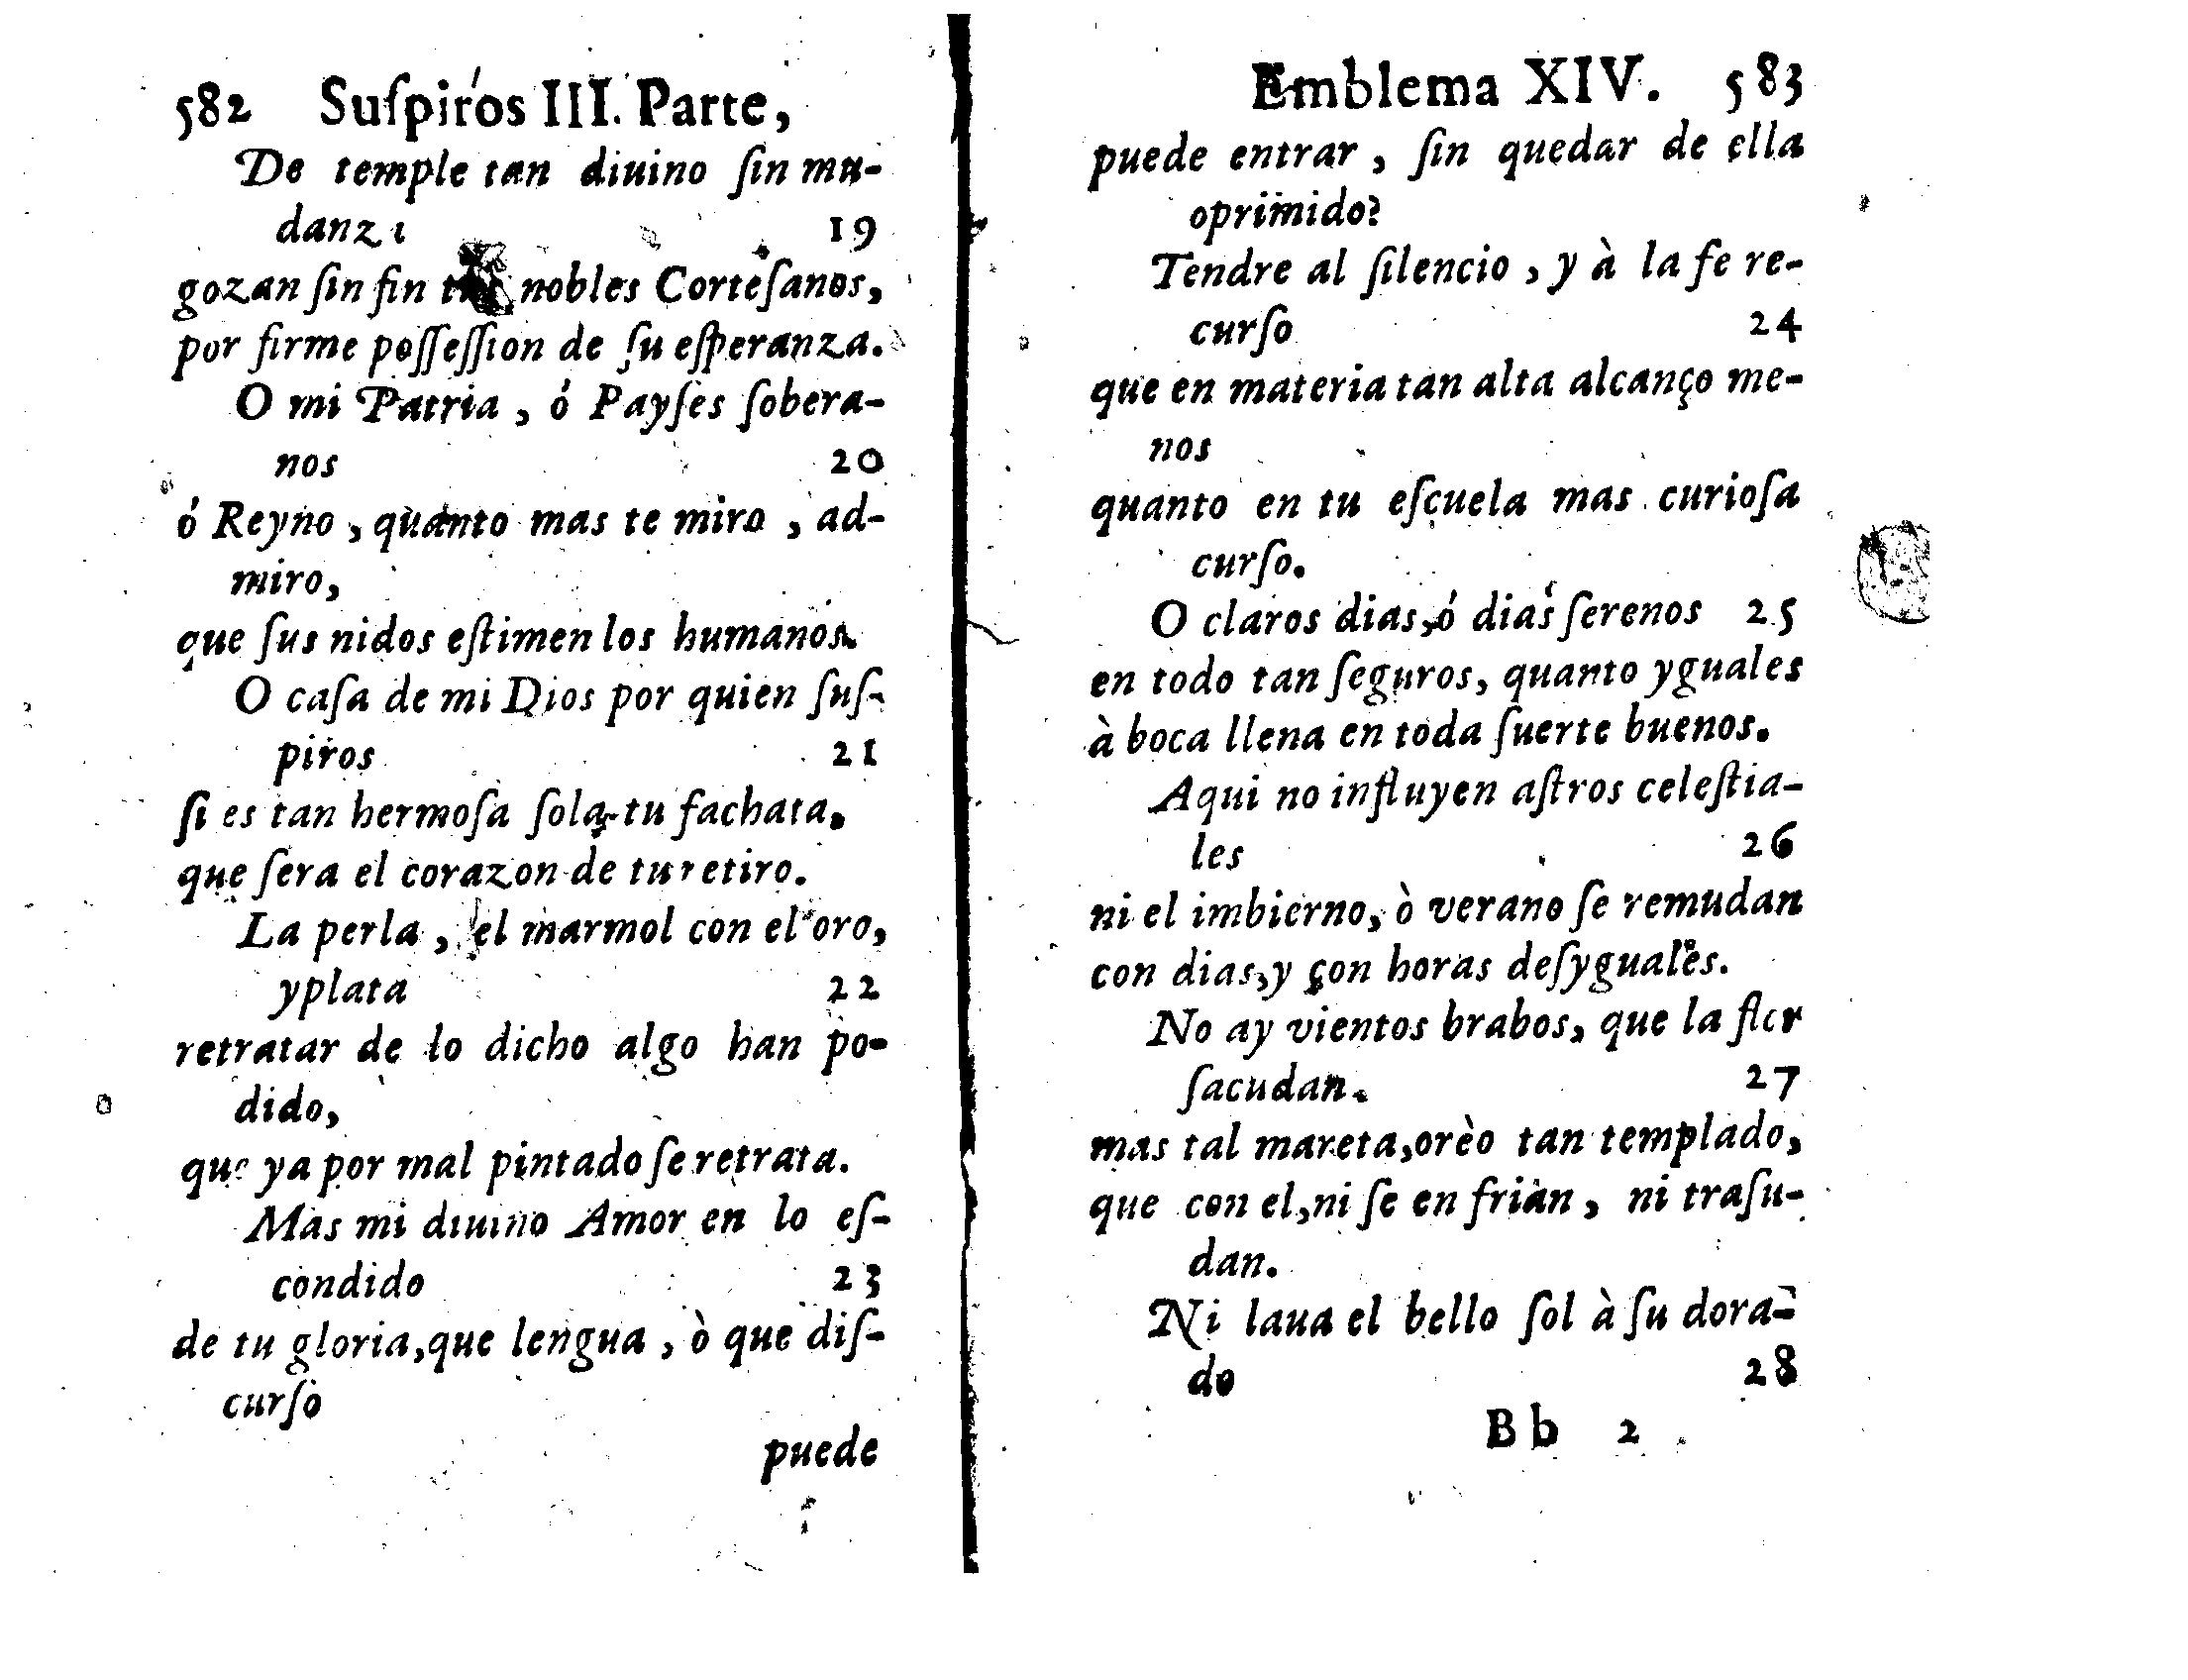 582 Suſpiros III. Parte,
De temple tan diuino ſin mu-
danza 19
gozan ſin fin nobles Corteſanos,
por firme poſſeſſion de ſu eſperanza.
O mi Patria, ó Payſes ſobera-
nos 20
ó Reyno, quanto mas te miro, ad-
miro,
que ſus nidos eſtimen los humanos.
O caſa de mi Dios por quien ſuſ-
piros 21
ſi es tan hermoſa ſola tu fachata,
que ſera el corazon de tu retiro.
La perla, el marmol con el oro,
yplata 22
retratar de lo dicho algo han po-
dido,
que ya por mal pintado ſe retrata.
Mas mi diuino Amor en lo eſ-
condido 23
de tu gloria, que lengua, ò que diſ-
curſo
puede
Emblema XIV. 583
puede entrar, ſin quedar de ella
oprimido?
Tendre al ſilencio, y à la fe re-
curſo 24
que en materia tan alta alcanço me-
nos
quanto en tu eſcuela mas curioſa
curſo.
O claros dias, ó dias ſerenos 25
en todo tan ſeguros, quanto yguales
à boca llena en toda ſuerte buenos.
Aqui no influyen aſtros celeſtia-
les 26
ni el imbierno, ò verano ſe remudan
con dias, y con horas deſyguales.
No ay vientos brabos, que la flor
ſacudan. 27
mas tal mareta, orèo tan templado,
que con el, ni ſe en frian, ni traſu-
dan.
Ni laua el bello ſol à ſu dora-
do 28
Bb 2